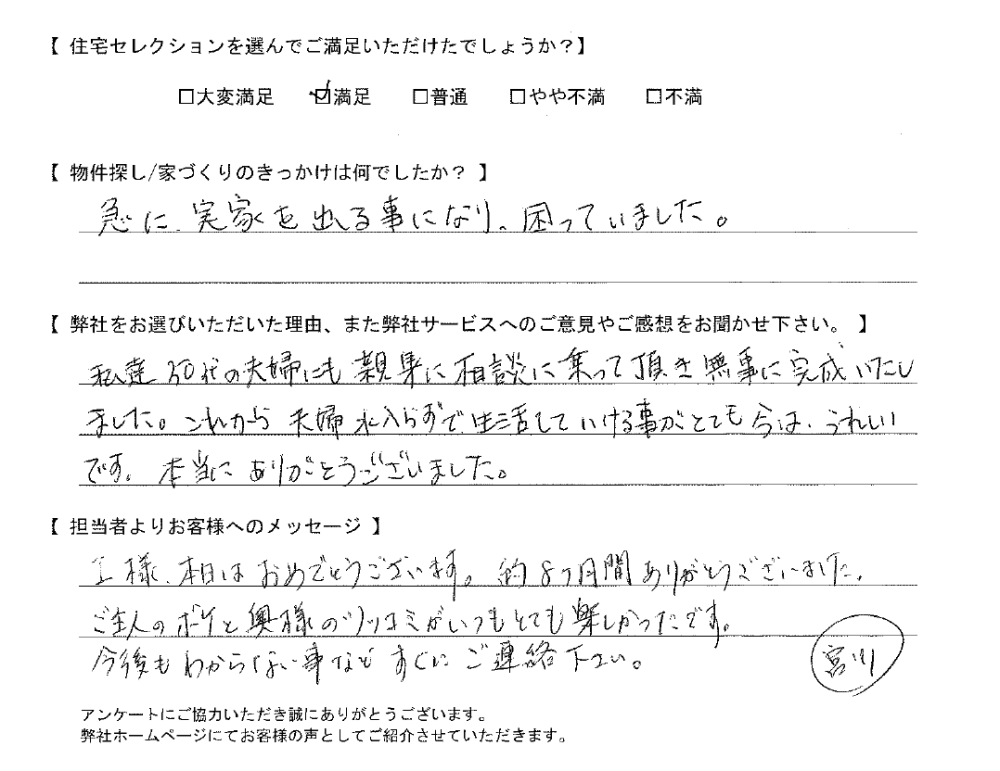 【 住宅セレクションを選んでご満足いただけたでしょうか？】
□大変満足 ☑満足 □普通 □やや不満 □不満
【 物件探し/家づくりのきっかけは何でしたか？ 】
急に、実家を出る事になり、困っていました。
【 弊社をお選びいただいた理由、また弊社サービスへのご意見やご感想をお聞かせ下さい。 】
私達50代の夫婦にも親身に相談に乗って頂き無事に完成いたし
ました。これから夫婦水入らずで生活していける事がとても今は、うれしい
です。本当にありがとうございました。
【 担当者よりお客様へのメッセージ 】
I様、本日はおめでとうございます。約8ヶ月間ありがとうございました。
ご主人のボケと奥様のツッコミがいつもとても楽しかったです。
今後もわからない事などすぐにご連絡下さい。
宮川
アンケートにご協力いただき誠にありがとうございます。
弊社ホームページにてお客様の声としてご紹介させていただきます。